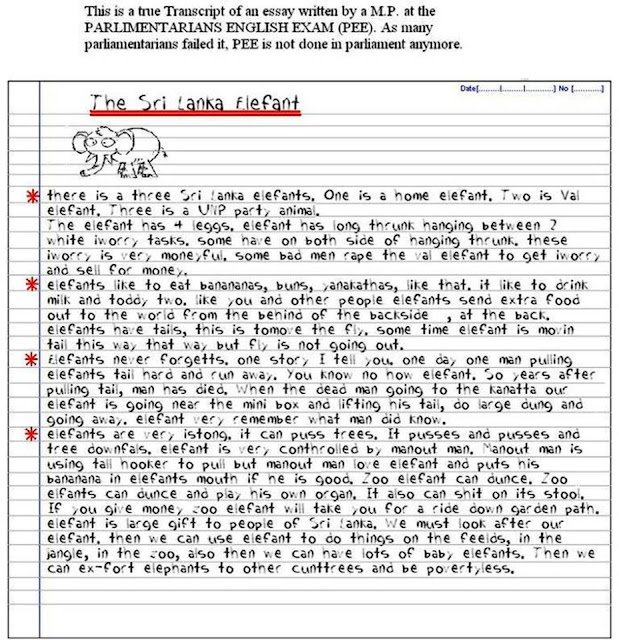 This is a true Transcript of an essay written by a M.P. at the
PARLIMENTARIANS ENGLISH EXAM (PEE). As many
parliamentarians failed it, PEE is not done in parliament anymore.
Date[......../......../..........] No [...........]
The Sri Lanka Elefant
* there is a three Sri Lanka elefants. One is a home elefant. Two is Val
elefant. Three is a UNP party animal.
The elefant has 4 leggs. elefant has long thrunk hanging between 2
white iworry tasks. some have on both side of hanging thrunk. these
iworry is very moneyful. some bad men rape the val elefant to get iworry
and sell for money.
* elefants like to eat banananas, buns, yanakathas, like that. it like to drink
milk and toddy two. like you and other people elefants send extra food
out to the world from the behind of the backside , at the back.
elefants have tails, this is tomove the fly. some time elefant is movin
tail this way that way but fly is not going out.
* Elefants never forgetts. one story I tell you. one day one man pulling
elefants tail hard and run away. You know no how elefant. So years after
pulling tail, man has died. When the dead man going to the kanatta our
elefant is going near the mini box and lifting his tail, do large dung and
going away. elefant very remember what man did know.
* elefants are very istong. it can puss trees. It pusses and pusses and
tree downfals. elefant is very conthrolled by manout man. Manout man is
using tall hooker to pull but manout man love elefant and puts his
bananana in elefants mouth if he is good. Zoo elefant can dunce. Zoo
elfants can dunce and play his own organ. It also can shit on its stool.
If you give money zoo elefant will take you for a ride down garden path.
elefant is large gift to people of Sri Lanka. We must look after our
elefant. then we can use elefant to do things on the feelds, in the
jangle, in the zoo, also then we can have lots of baby elefants. Then we
can ex-fort elephants to other cunttrees and be povertyless.